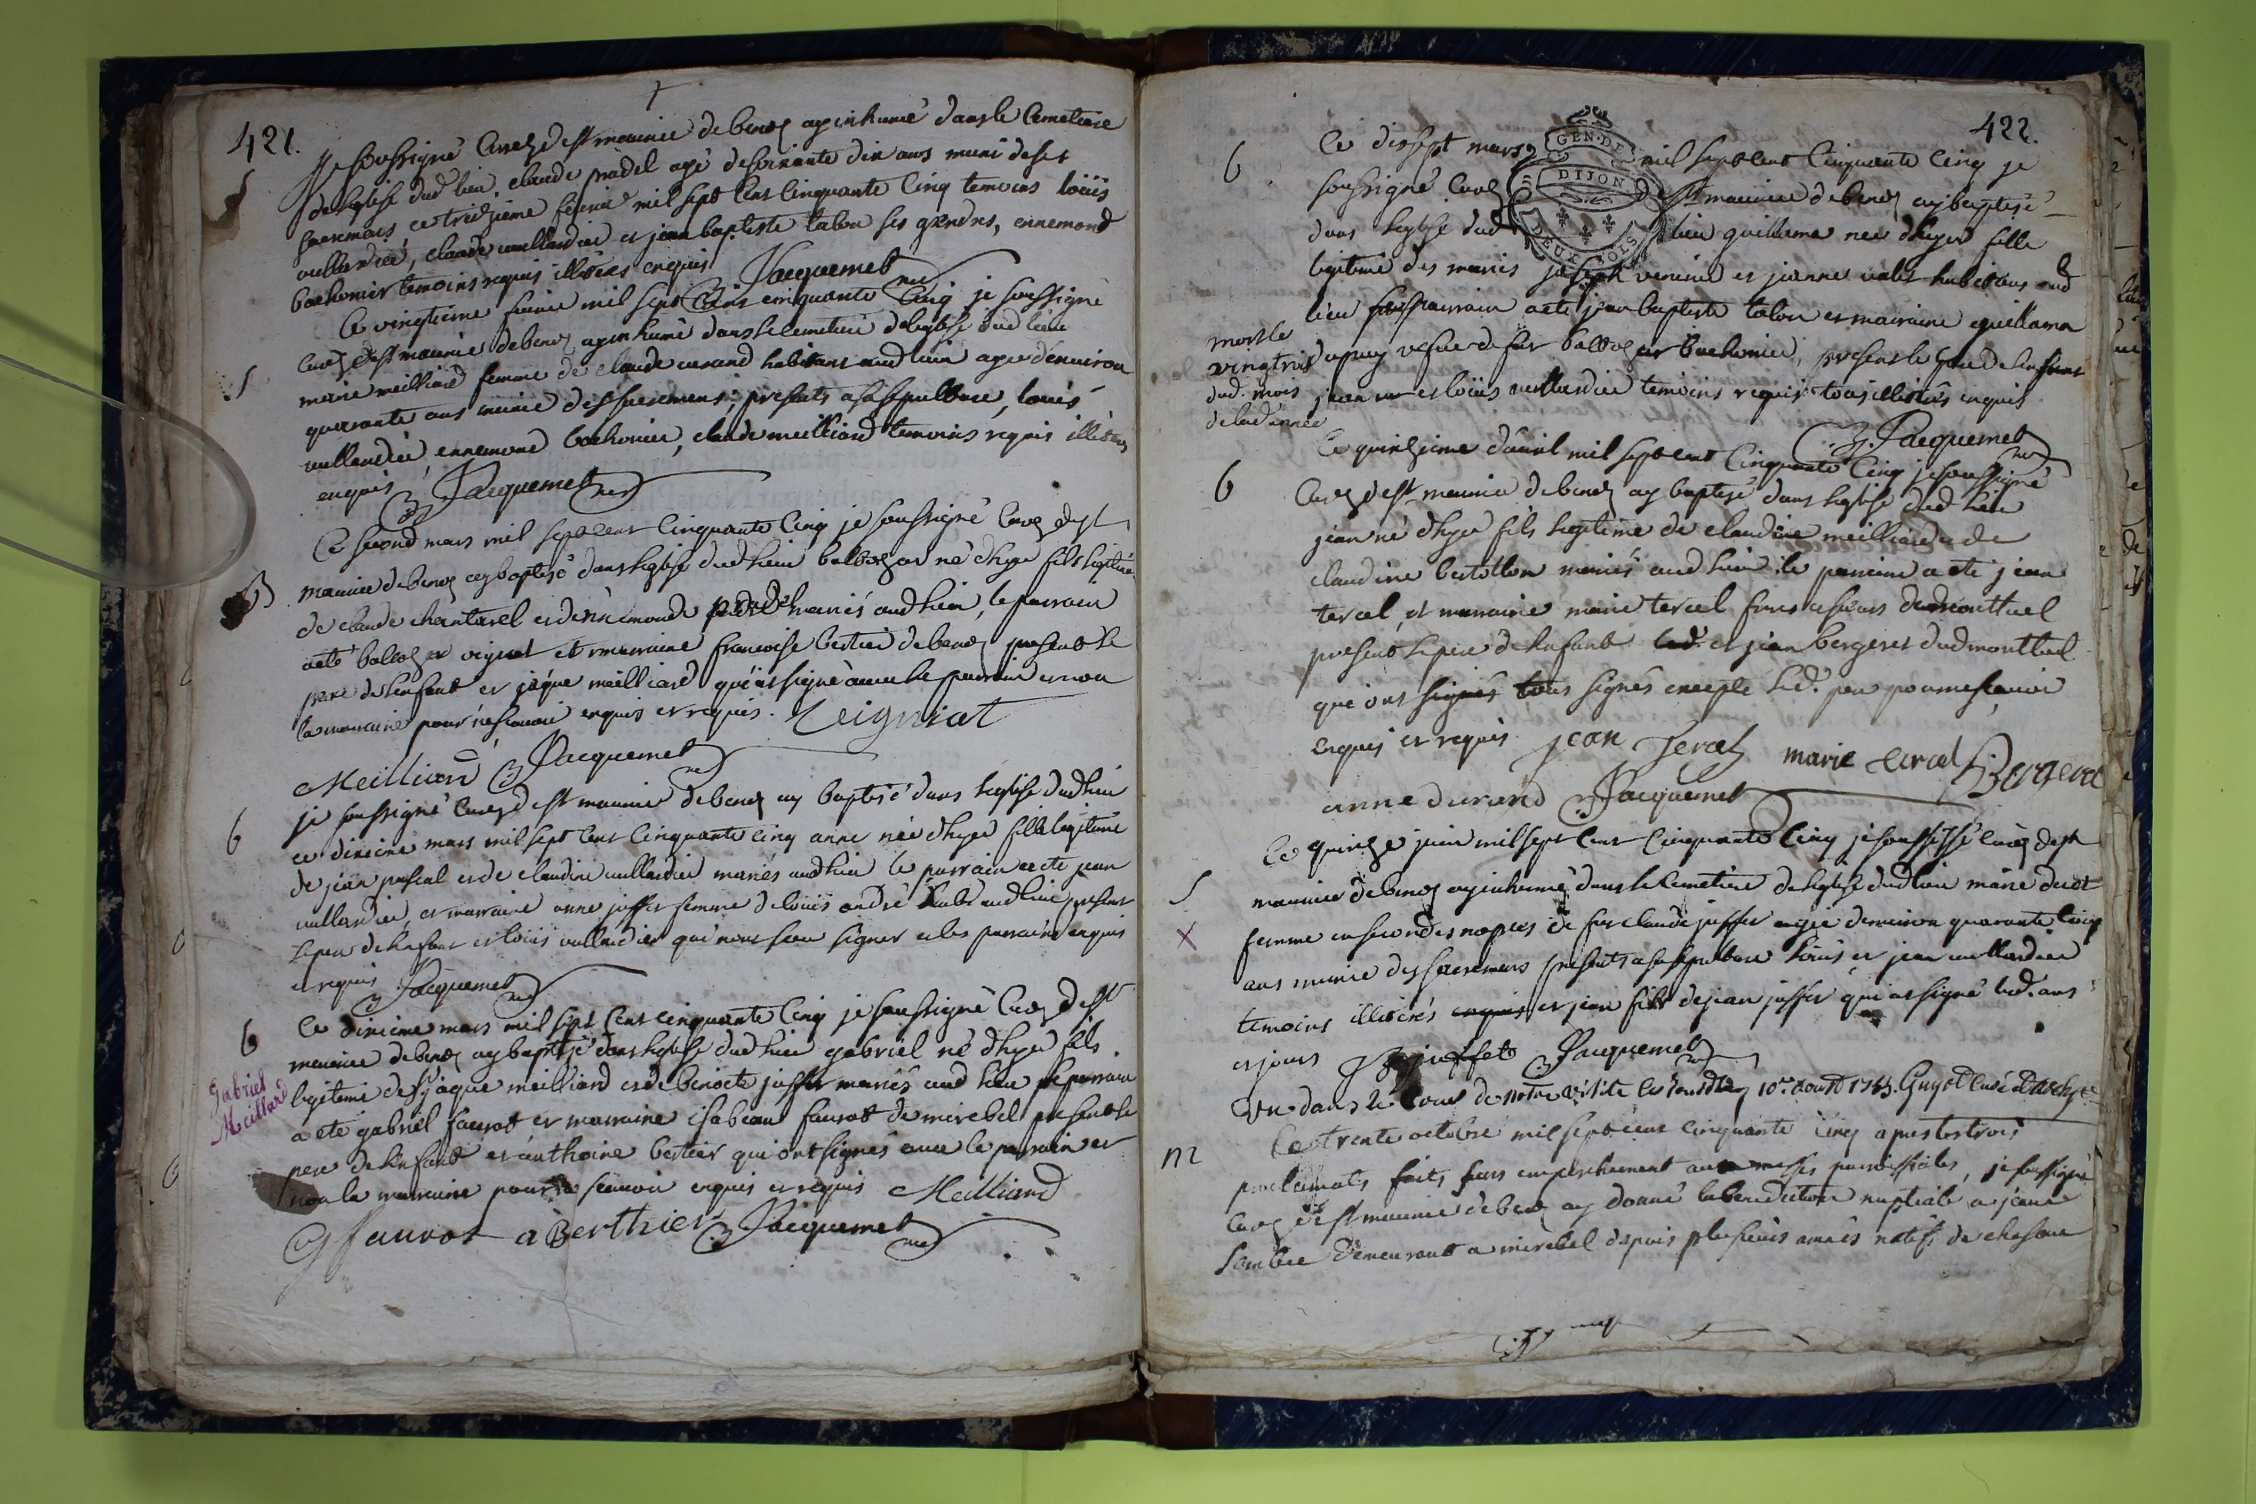 421.
S
je soussigné curé de st maurice de beinoz ay inhumé dans le cemetiere
de leglise dud lieu claude pradel agé de soixante dix ans muni de ses
sacremens, ce treizieme fevrier mil sept cent cinquante cinq temoins loüis
vullardié, claude vullardier et jean baptiste talon ses gendres, ennemond
bachonier temoins requis illiterés enquis Jacquemet
Ce vingtieme fevrier mil sept cens cinquante cinq je soussigné
S
curé de st maurice de beinoz ay inhumé dans le cemetiere de leglise dud lieu
marie meilliard femme de claude curand habitant aud lieu agée d'environ
quarante ans munie des sacremens, presents a sa sepulture, louis
vullardié, ennemond bachonier, claude meilliard temoins requis illiterés
enquis Jacquemet
Ce second mars mil sept cent cinquante cinq je soussigné curé de st
B
maurice de beinoz ay baptisé dans leglise dud lieu baltazar né d'hyer fils legitime
de claude chantarel et d'ennemonde mariés aud lieu, le parrain
a eté baltazar vignat et marraine francoise bertier de beinoz present le
pere de lenfant et jaque meilliard qui ont signé avec le parrain et non
la marraine pour ne scavoir enquis et requis. Veigniat
Meilliard Jacquemet
6
je soussigné curé de st maurice de beinoz ay baptisé dans leglise dud lieu
ce dixieme mars mil sept cent cinquante cinq anne née d'hyer fille legitime
de jean pascal et de claudine vullardier mariés aud lieu le parrain a eté jean
vullardié, et marraine anne juffet femme de loüis andré aud lieu, present
le pere de lenfant et loüis vullardier qui n'ont sceu signer ni les parrains enquis
et requis Jacquemet
6
Ce dixieme mars mil sept cent cinquante cinq je soussigné curé de st
maurice de beinoz ay baptisé dans leglise dud lieu gabriel né d'hyer fils
Gabriel
Meillard
legitime de jaque meilliard et de benoite juffet mariés aud lieu le parrain
a eté gabriel faurot et marraine isabeau faurot de mirebel present le
pere de lenfant et anthoine bertier qui ont signés avec le parrain et
non la marraine pour ne scavoir enquis et requis Meilliard
G faurot a Berthier Jacquemet
422.
GEN. DE
DIJON
DEUX SOLS
6
Ce dix sept mars mil sept cent cinquante cinq je
soussigné curé de st maurice de beinoz ay baptisé
dans leglise dud lieu guillerma née d'hyer fille
legitime des mariés joseph et jeanne habitans aud
lieu son parrain a eté jean baptiste talon et marraine guillerma
morte le
vingtrois
dud. mois
de lad année
dupuy vefve de feu baltazar bachonier, present le pere de lenfant
jean et loüis vullardier temoins requis tous illiterés enquis
Jacquemet
6
Ce quinzieme d'avril mil sept cent cinquante cinq je soussigné
curé de st maurice de beinoz ay baptisé dans leglise dud lieu
jean né d'hyer fils legitime de claudine meilliard et de
claudine bertillon mariés aud lieu le parrain a eté jean
tercel, et marraine marie tercel freres et soeurs de montluel
present le pere de lenfant et jean bergeret dud montluel
qui ont signés tous signés excepté led. pere pour ne scavoir
enquis et requis jean Tercel marie tercel Bergeret
anne durand Jacquemet
S
X
Ce quinze juin mil sept cent cinquante cinq je soussigné curé de st
maurice de beinoz ay inhumé dans le cemetiere de leglise dud lieu marie
femme en secondes nopces de feu claude juffet agée d'environ quarante cinq
ans munie des sacremens presents a sa sepulture loüis et jean vullardier
temoins illiterés enquis et jean fils de jean juffet qui a signé lesd. ans
et jours J juffet Jacquemet
Vu dans le cours de notre visite 10e. aoust 1755. Guyot curé
m
Ce trente octobre mil sept cent cinquante cinq apres les trois
proclamats faits sans empeschement aux messes parroissiales, je soussigné
curé de st maurice de beinoz ay donné la benediction nuptiale a jean
demeurant a mirebel depuis plusieurs années natif de